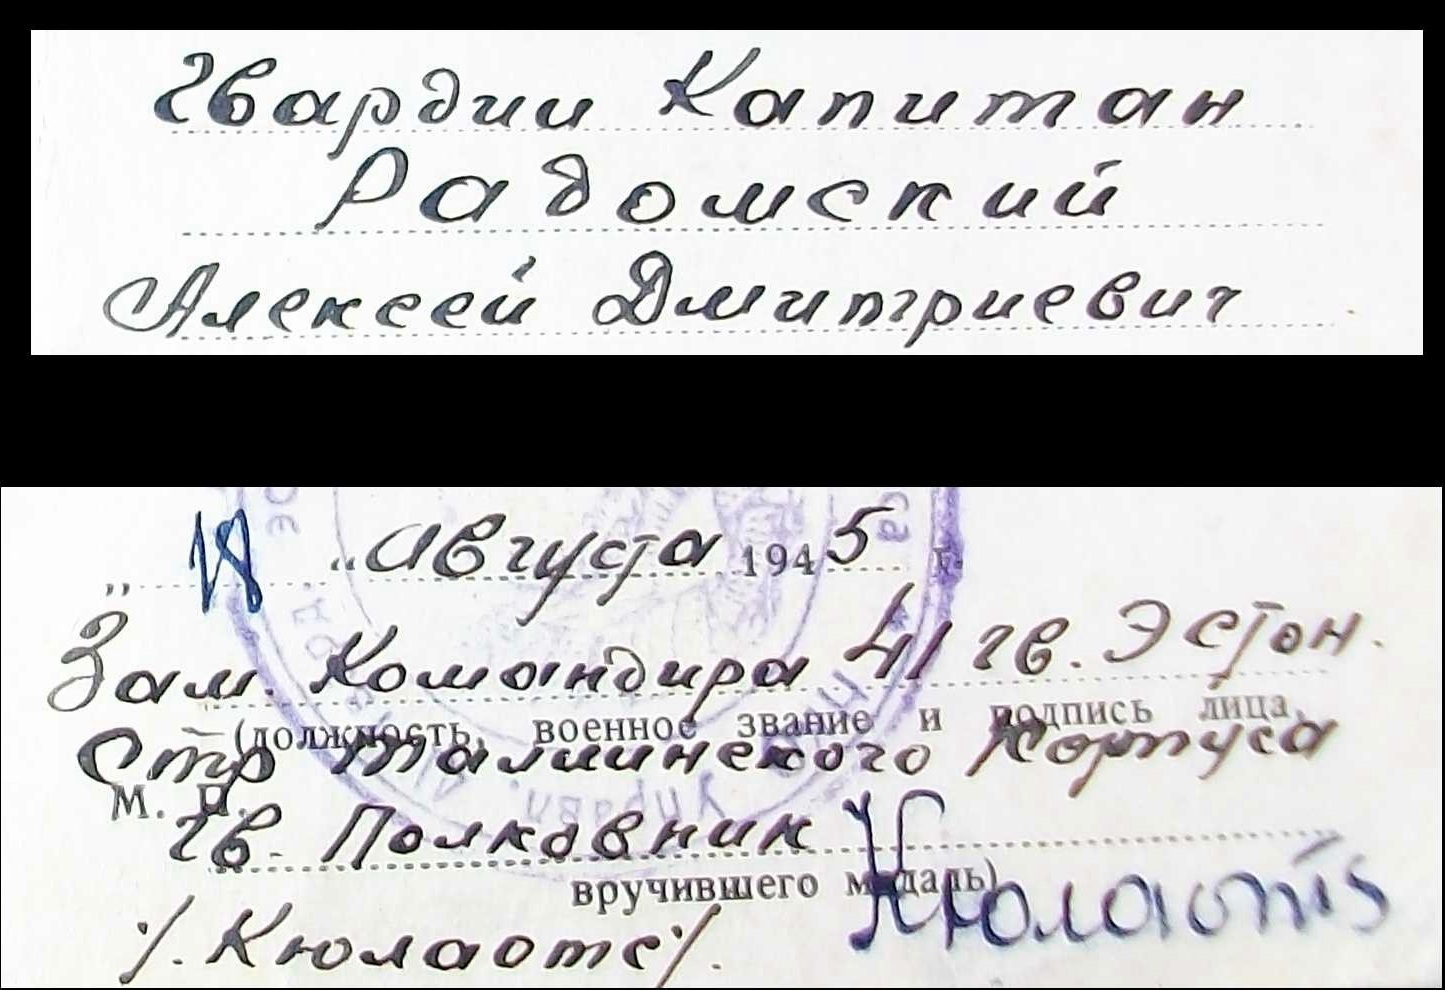 Гвардии Капитан
Радомский
Алексей Дмитриевич
„ 18 “ Августа 1945 г.
Зам. Командира 41 гв. Эстон.
(должность, военное звание и подпись лица,
Стр Таллинского Корпуса
М. П.
гв. Полковник Кюлаотс
вручившего медаль)
/. Кюлаотс /.